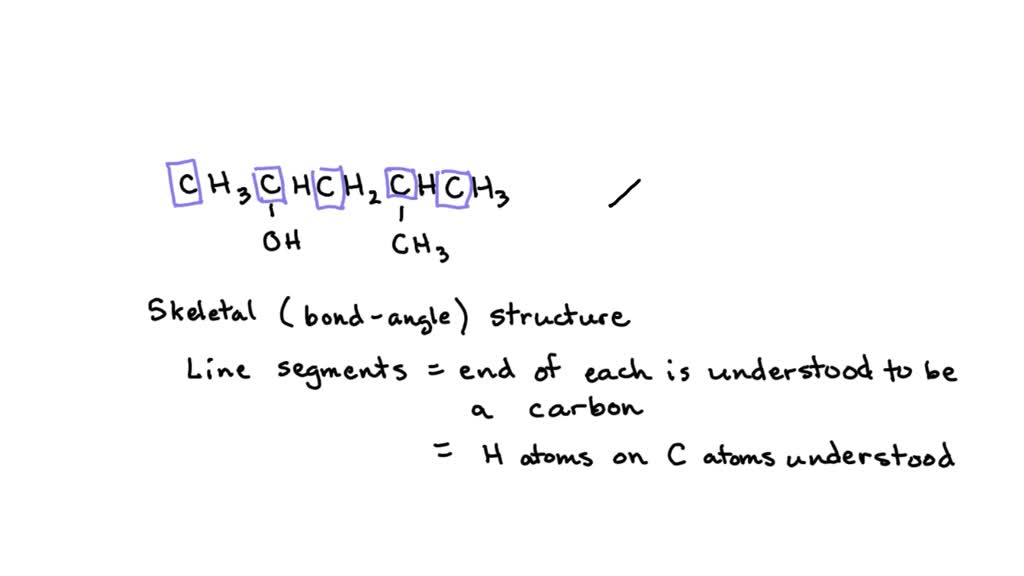 CH₃CHCH₂CHCH₃
OH CH₃
Skeletal (bond-angle) structure
Line segments = end of each is understood to be
a carbon
= H atoms on C atoms understood